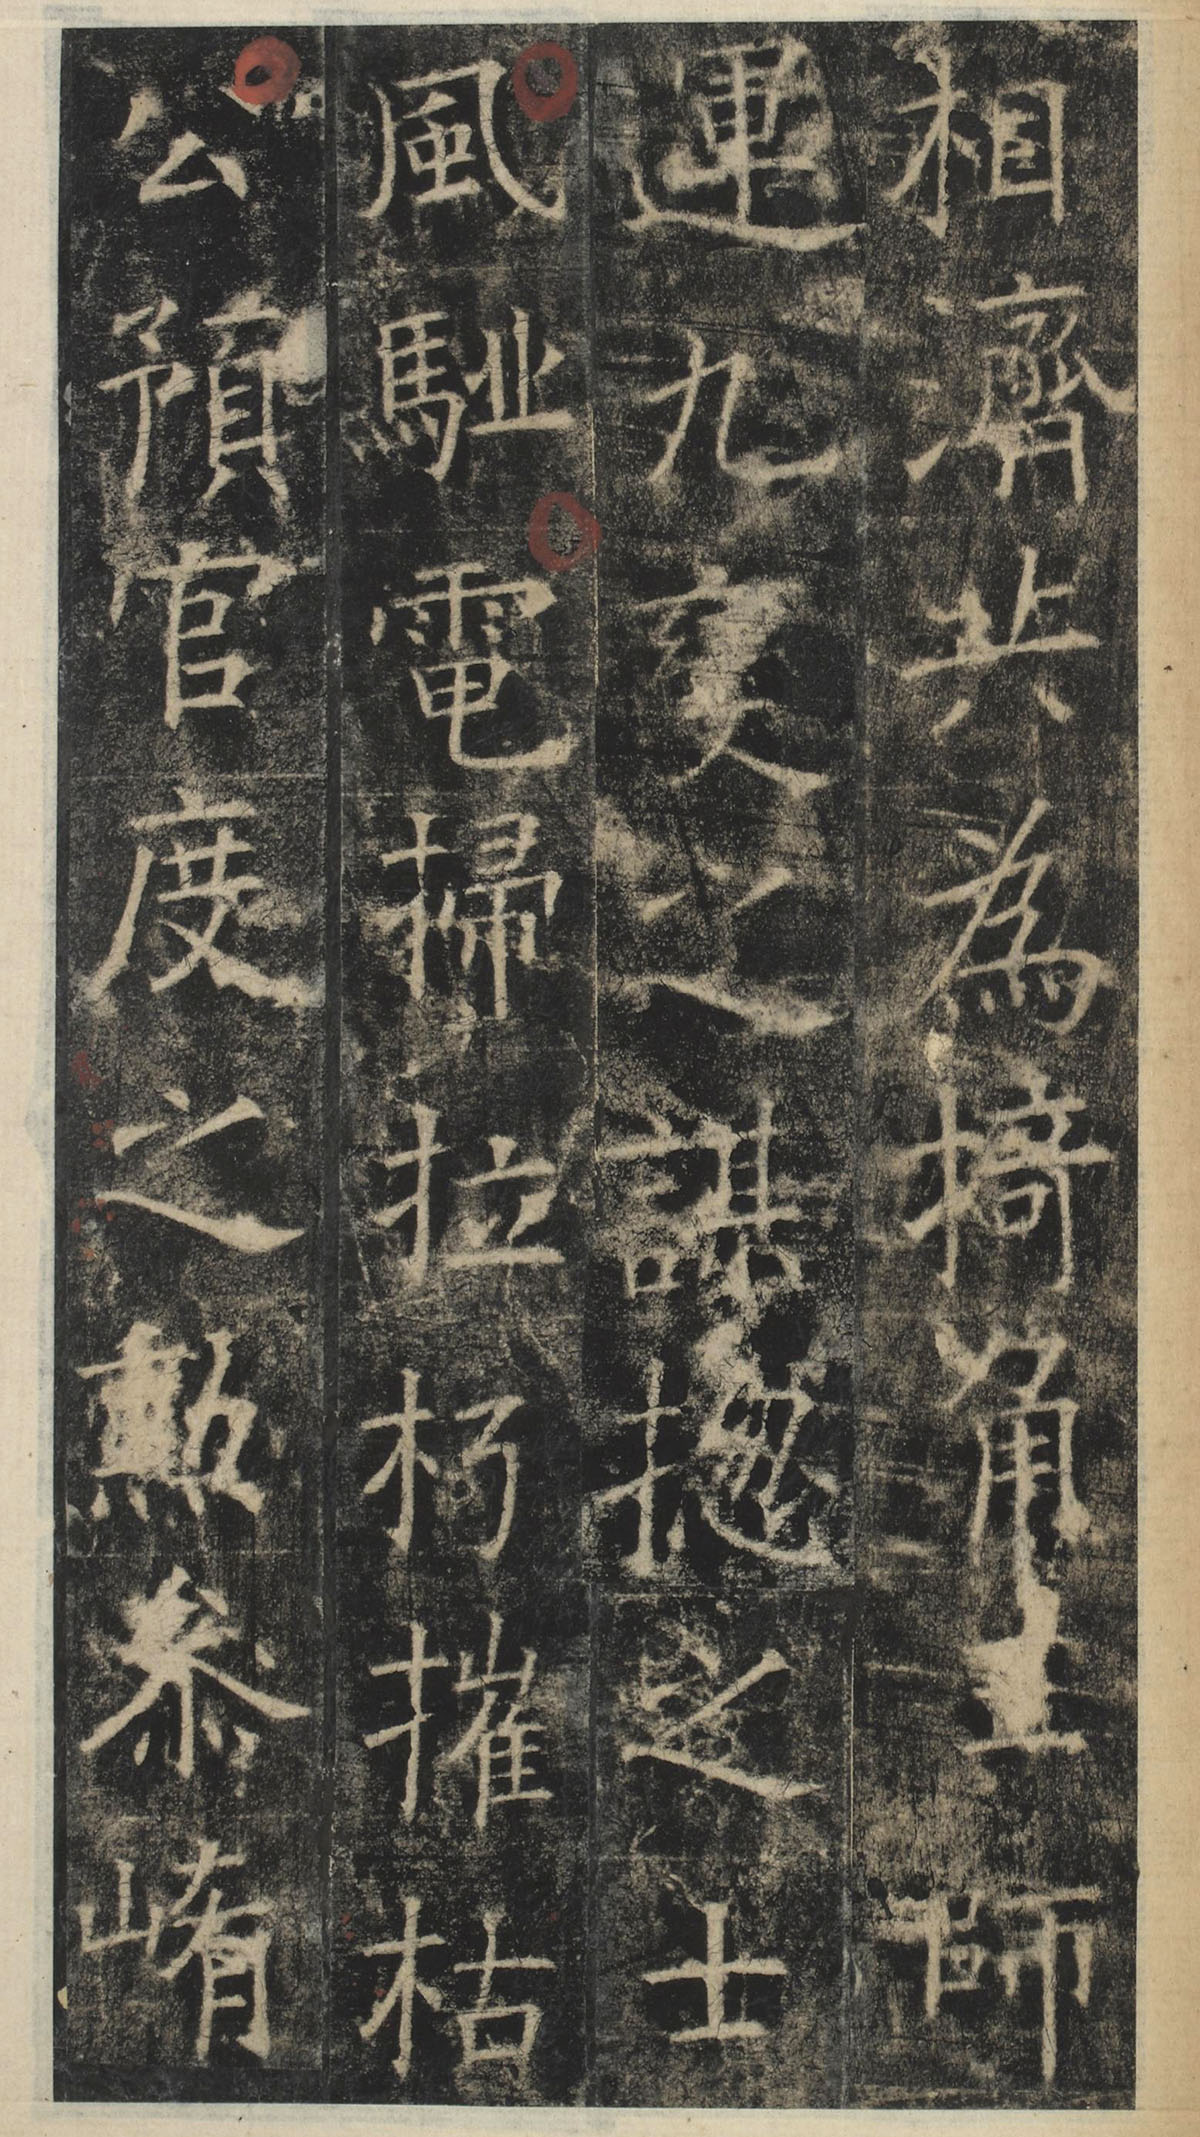 相濟共為掎角王師
運九變之謀揔之士
風馳電掃拉朽摧枯
公預官度之勳參崤